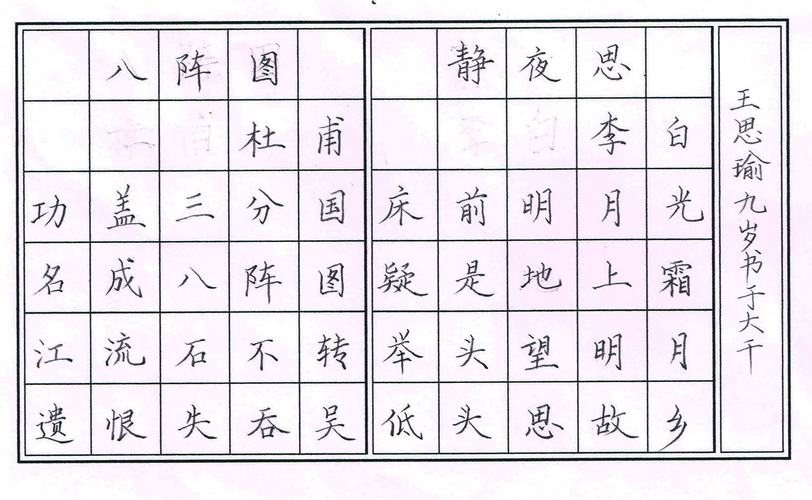 八阵图
杜甫
功盖三分国
名成八阵图
江流石不转
遗恨失吞吴
静夜思
李白
床前明月光
疑是地上霜
举头望明月
低头思故乡
王思瑜九岁书于大千